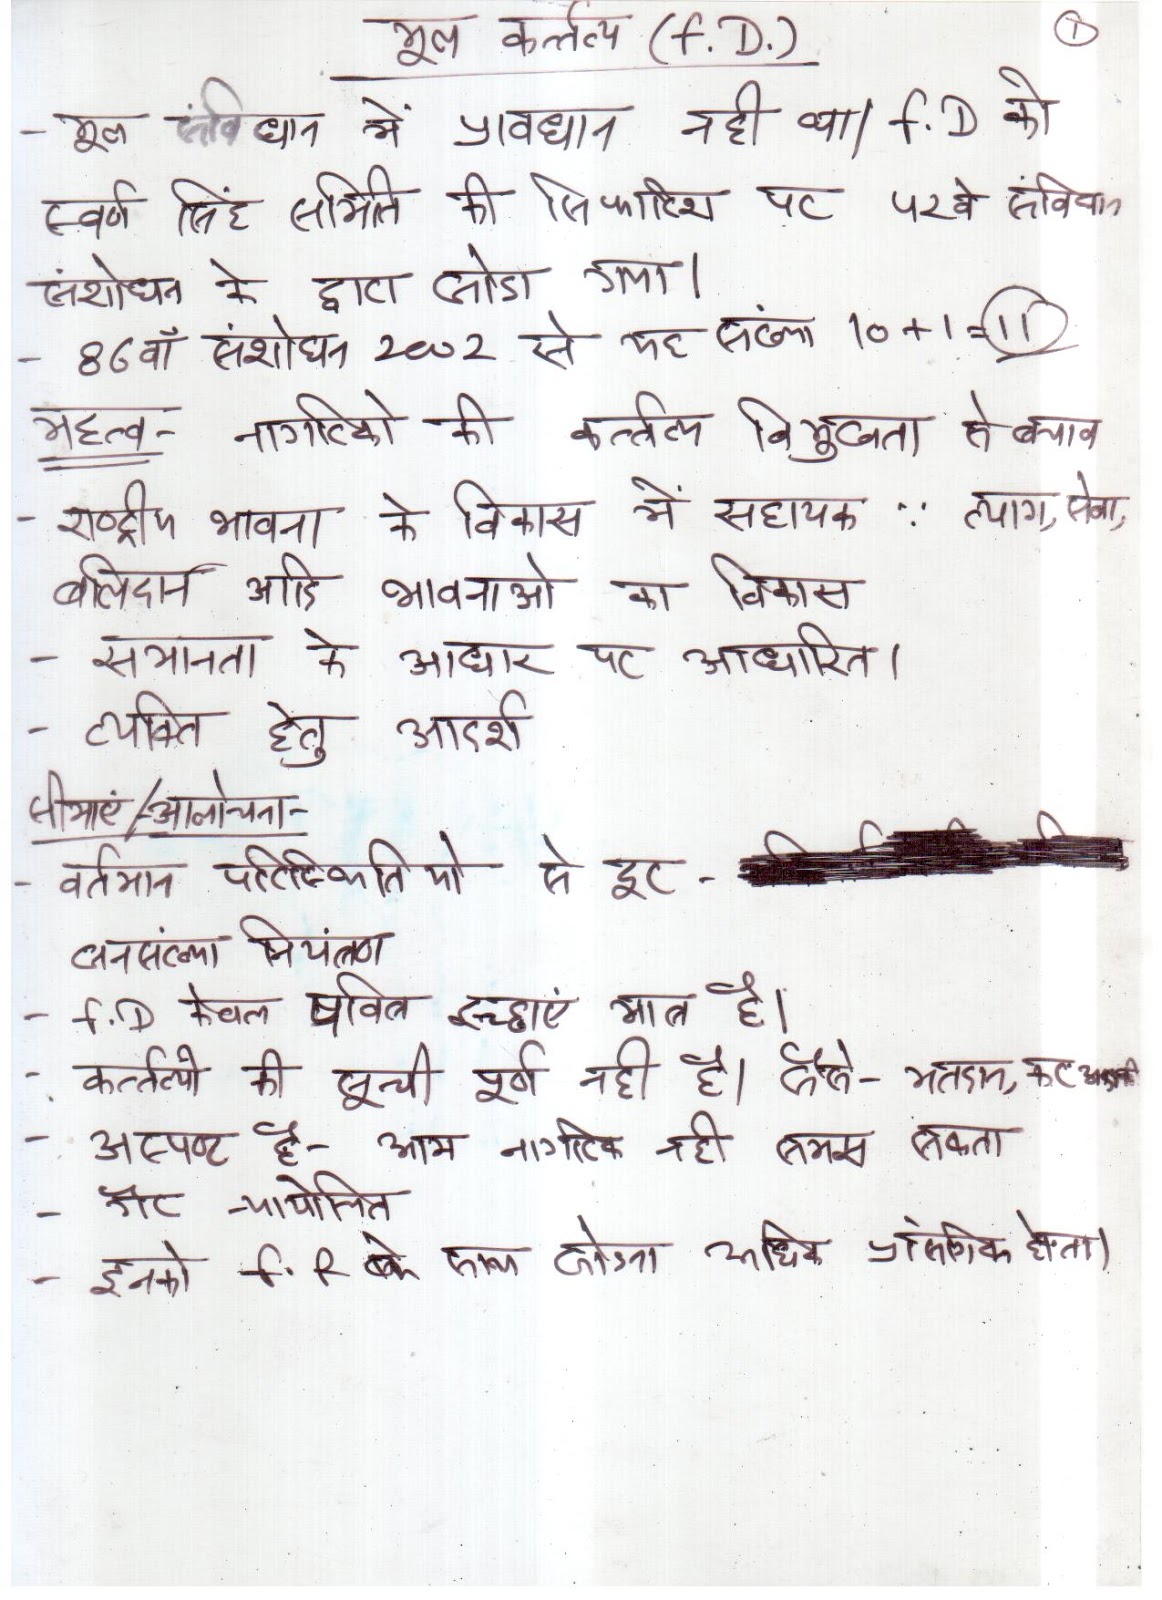 मूल कर्त्तव्य (F.D.)
1
- मूल संविधान में प्रावधान नही था। F.D को
स्वर्ण सिंह समिति की सिफारिश पर 42वे संविधान
संशोधन के द्वारा जोडा गया।
- 86वाँ संशोधन 2002 से यह संख्या 10+1=11
महत्व- नागरिको की कर्त्तव्य विमुखता से बचाव
- राष्ट्रीय भावना के विकास में सहायक ∵ त्याग, सेवा,
बलिदान आदि भावनाओ का विकास
- समानता के आधार पर आधारित।
- व्यक्ति हेतु आदर्श
सीमाएं/आलोचना-
- वर्तमान परिस्थितियो से दूर -
जनसंख्या नियंत्रण
- F.D केवल पवित्र इच्छाएं मात्र है।
- कर्त्तव्यो की सूची पूर्ण नही है। जैसे- मतदान, कर
- अस्पष्ट है- आम नागरिक नही समझ सकता
- गैर न्यायोजित
- इनको F.R के साथ जोडना अधिक प्रांसगिक होता।